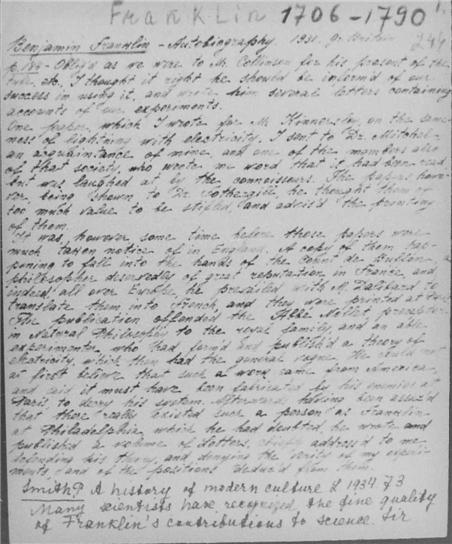 Franklin 1706-1790 1.
Benjamin Franklin - Autobiography. 1931. Gr. Britain 244
p. 188 - Oblig'd as we were to Mr. Collinson for his present of the
tube, etc. I thought it right he should be inform'd of our
success in using it, and wrote him several letters containing
accounts of our experiments.
One paper, which I wrote for Mr. Kinnersley, on the same-
ness of lightning with electricity, I sent to Dr. Mitchel-
an acquaintance of mine, and one of the members also
of that society, who wrote me word that it had been read
but was laughed at by the connoisseurs. The papers how-
ever, being shown to Dr. Fothergill, he thought them of
too much value to be stifled, and advis'd the printing
of them.
It was, however some time before those papers were
much taken notice of in England. A copy of them hap-
pening to fall into the hands of the Count de Buffon, a
philosopher deservedly of great reputation in France, and
indeed all over Europe, he prevailed with M. Dalibard to
translate them into French, and they were printed at Paris.
The publication offended the Abbe Nollet, preceptor
in Natural Philosophy to the royal family, and an able
experimenter, who had form'd and publish'd a theory of
electricity which then had the general vogue. He could not
at first believe that such a work came from America
and said it must have been fabricated by his enemies at
Paris, to decry his system. Afterwards having been assur'd
that there really existed such a person as Franklin
at Philadelphia, which he had doubted, he wrote and
published a volume of Letters, chiefly address'd to me,
defending his theory, and denying the verity of my experi-
ments, and of the positions deduc'd from them.
Smith P A history of modern culture 2 1934 73
Many scientists have recognized the fine quality
of Franklin's contributions to science. Sir